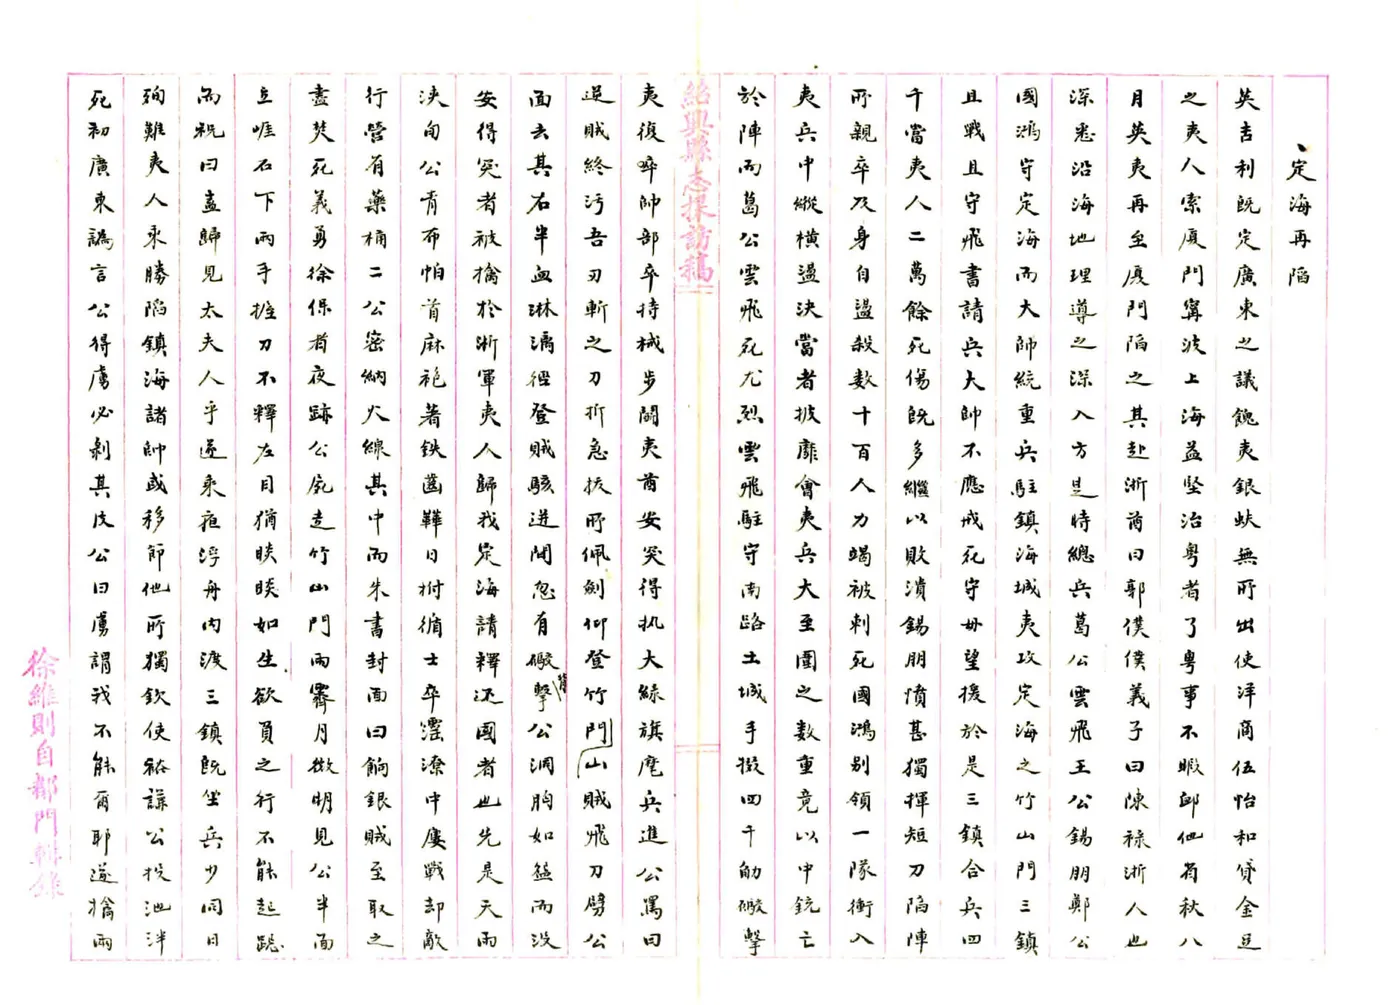 定海再陷
英吉利既定廣東之議餽夷銀蚨無所出使洋商伍怡和貸金足
之夷人索厦門寧波上海益堅治粤者了粤事不暇卹他省秋八
月英夷再至厦門陷之其赴浙酋曰郭僕僕義子曰陳禄浙人也
深悉沿海地理導之深入方是時總兵葛公雲飛王公錫朋鄭公
國鴻守定海而大帥統重兵駐鎮海城夷攻定海之竹山門三鎮
且戰且守飛書請兵大帥不應戒死守毋望援於是三鎮合兵四
千當夷人二萬餘死傷既多繼以敗潰錫朋憤甚獨揮短刀陷陣
所親卒及身自盪殺数十百人力竭被刺死國鴻别領一隊衝入
夷兵中縱横盪決當者披靡會夷兵大至圍之数重竟以中銃亡
於陣而葛公雲飛死尤烈雲飛駐守南路土城手撥四千觔礮擊
紹興縣志採訪稿
夷復率帥部卒持械步鬪夷酋安突得执大綠旗麾兵進公罵曰
逆賊終污吾刃斬之刀折急拔所佩劍仰登竹門山賊飛刀劈公
面去其右半血淋漓徑登賊駭迸間忽有礮擊公洞胸如盌而没
安得突者被擒於浙軍夷人歸我定海請釋还國者也先是天雨
浹旬公青布帕首麻袍著鉄齒鞾日拊循士卒霪潦中屢戰却敵
行營有藥桶二公密納火線其中而朱書封面曰餉銀賊至取之
盡焚死義勇徐保者夜跡公屍走竹山門雨霽月微明見公半面
立崕石下兩手握刀不釋左目猶睒睒如生欲負之行不能起跪
而祝曰盍歸見太夫人乎遂乘夜浮舟内渡三鎮既坐兵少同日
殉難夷人乘勝陷鎮海諸帥或移師他所獨欽使裕謙公投池泮
死初廣東譌言公得虜必剥其皮公曰虜謂我不能爾耶遂擒兩
徐維則自都門輯錄